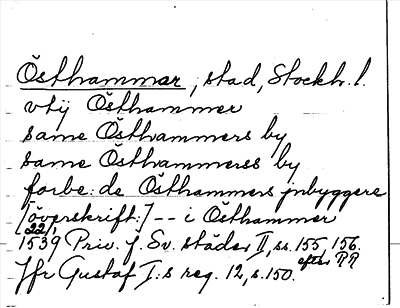 Östhammar, stad, Stockh. l.
vtij Östhammer
same Östhammers by
same Östhammerss by
forbe: de Östhammers jnbyggere
[överskrift:] -- i Östhammer
22/1
1539 Priv. f. Sv. städer II, ss. 155, 156.
efter RR
Jfr Gustaf I:s reg. 12, s. 150.